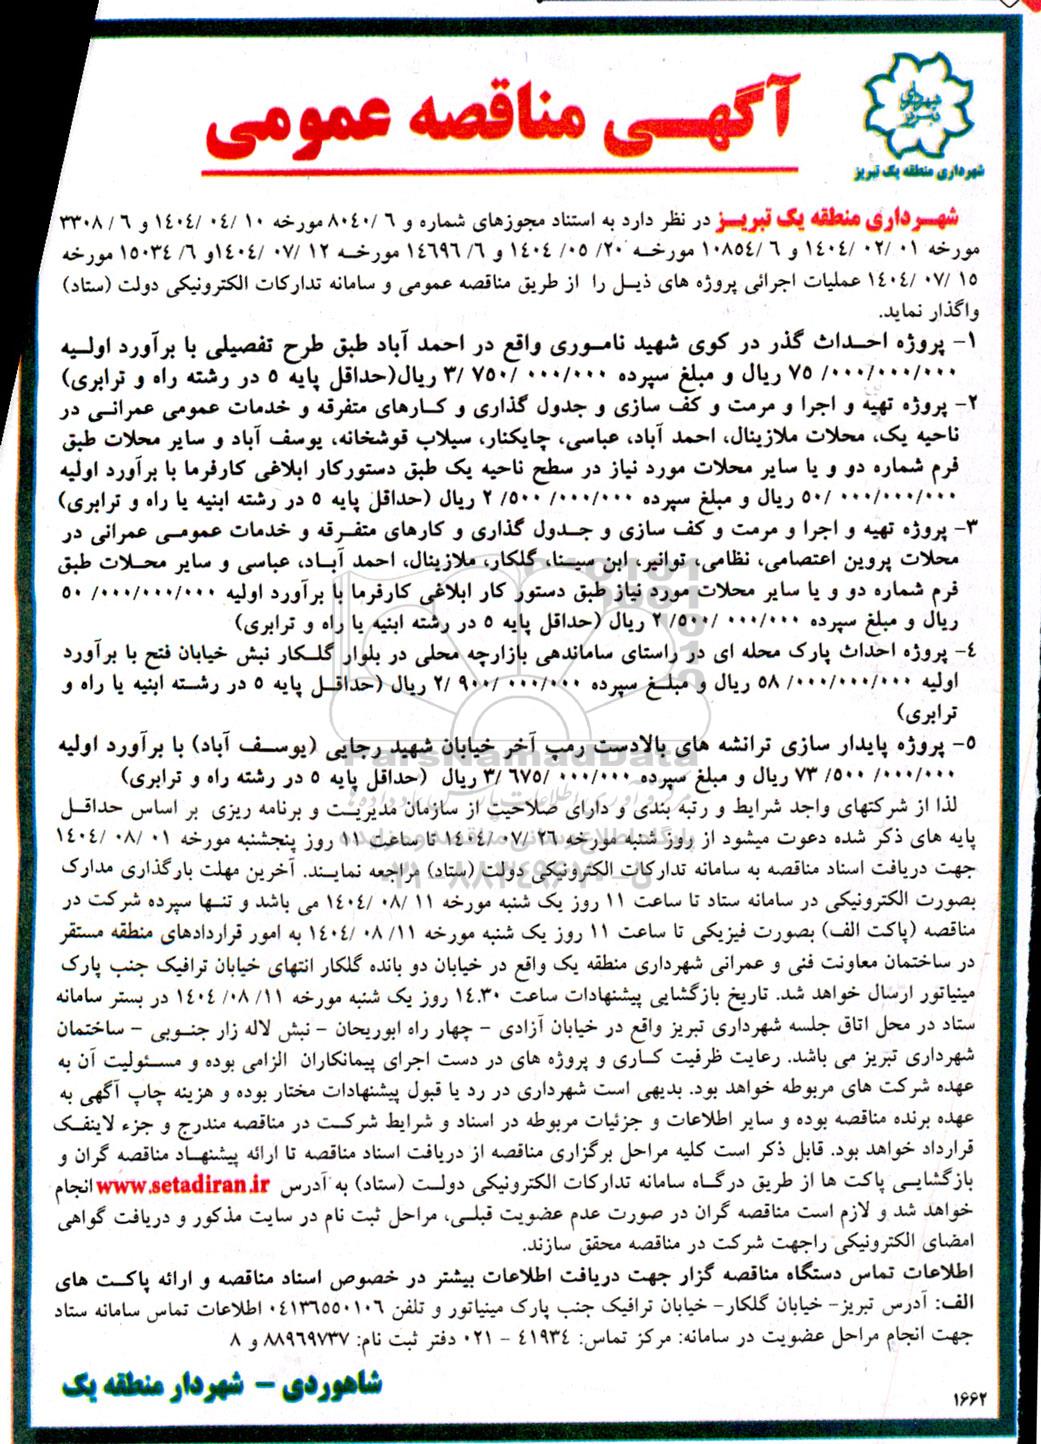 آگهی مناقصه عمومی
شهرداری تبریز
شهرداری منطقه یک تبریز
شهرداری منطقه یک تبریز در نظر دارد به استناد مجوزهای شماره و ۸۰۴۰/۶ مورخه ۱۴۰۴/۰۴/۱۰ و ۳۳۰۸/۶
مورخه ۱۴۰۴/۰۲/۰۱ و ۱۰۸۵۴/۶ مورخه ۱۴۰۴/۰۵/۲۰ و ۱۴۶۹۶/۶ مورخه ۱۴۰۴/۰۷/۱۲و ۱۵۰۳۴/۶ مورخه
۱۴۰۴/۰۷/۱۵ عملیات اجرائی پروژه های ذیل را از طریق مناقصه عمومی و سامانه تدارکات الکترونیکی دولت (ستاد)
واگذار نماید.
۱- پروژه احداث گذر در کوی شهید ناموری واقع در احمد آباد طبق طرح تفصیلی با برآورد اولیه
۷۵/۰۰۰/۰۰۰/۰۰۰ ریال و مبلغ سپرده ۳/۷۵۰/۰۰۰/۰۰۰ ریال(حداقل پایه ۵ در رشته راه و ترابری)
۲- پروژه تهیه و اجرا و مرمت و کف سازی و جدول گذاری و کارهای متفرقه و خدمات عمومی عمرانی در
ناحیه یک، محلات ملازینال، احمد آباد، عباسی، چایکنار، سیلاب قوشخانه، یوسف آباد و سایر محلات طبق
فرم شماره دو و یا سایر محلات مورد نیاز در سطح ناحیه یک طبق دستورکار ابلاغی کارفرما با برآورد اولیه
۵۰/۰۰۰/۰۰۰/۰۰۰ ریال و مبلغ سپرده ۲/۵۰۰/۰۰۰/۰۰۰ ریال (حداقل پایه ۵ در رشته ابنیه یا راه و ترابری)
۳- پروژه تهیه و اجرا و مرمت و کف سازی و جدول گذاری و کارهای متفرقه و خدمات عمومی عمرانی در
محلات پروین اعتصامی، نظامی، توانیر، ابن سینا، گلکار، ملازینال، احمد آباد، عباسی و سایر محلات طبق
فرم شماره دو و یا سایر محلات مورد نیاز طبق دستور کار ابلاغی کارفرما با برآورد اولیه ۵۰/۰۰۰/۰۰۰/۰۰۰
ریال و مبلغ سپرده ۲/۵۰۰/۰۰۰/۰۰۰ ریال (حداقل پایه ۵ در رشته ابنیه یا راه و ترابری)
۴- پروژه احداث پارک محله ای در راستای ساماندهی بازارچه محلی در بلوار گلکار نبش خیابان فتح با برآورد
اولیه ۵۸/۰۰۰/۰۰۰/۰۰۰ ریال و مبلغ سپرده ۲/۹۰۰/۰۰۰/۰۰۰ ریال (حداقل پایه ۵ در رشته ابنیه یا راه و
ترابری)
۵- پروژه پایدار سازی ترانشه های بالادست رمپ آخر خیابان شهید رجایی (یوسف آباد) با برآورد اولیه
۷۳/۵۰۰/۰۰۰/۰۰۰ ریال و مبلغ سپرده ۳/۶۷۵/۰۰۰/۰۰۰ ریال (حداقل پایه ۵ در رشته راه و ترابری)
لذا از شرکتهای واجد شرایط و رتبه بندی و دارای صلاحیت از سازمان مدیریت و برنامه ریزی بر اساس حداقل
پایه های ذکر شده دعوت میشود از روز شنبه مورخه ۱۴۰۴/۰۷/۲۶ تا ساعت ۱۱ روز پنجشنبه مورخه ۱۴۰۴/۰۸/۰۱
جهت دریافت اسناد مناقصه به سامانه تدارکات الکترونیکی دولت (ستاد) مراجعه نمایند. آخرین مهلت بارگذاری مدارک
بصورت الکترونیکی در سامانه ستاد تا ساعت ۱۱ روز یک شنبه مورخه ۱۴۰۴/۰۸/۱۱ می باشد و تنها سپرده شرکت در
مناقصه (پاکت الف) بصورت فیزیکی تا ساعت ۱۱ روز یک شنبه مورخه ۱۴۰۴/۰۸/۱۱ به امور قراردادهای منطقه مستقر
در ساختمان معاونت فنی و عمرانی شهرداری منطقه یک واقع در خیابان دو بانده گلکار انتهای خیابان ترافیک جنب پارک
مینیاتور ارسال خواهد شد. تاریخ بازگشایی پیشنهادات ساعت ۱۴.۳۰ روز یک شنبه مورخه ۱۴۰۴/۰۸/۱۱ در بستر سامانه
ستاد در محل اتاق جلسه شهرداری تبریز واقع در خیابان آزادی - چهار راه ابوریحان - نبش لاله زار جنوبی - ساختمان
شهرداری تبریز می باشد. رعایت ظرفیت کاری و پروژه های در دست اجرای پیمانکاران الزامی بوده و مسئولیت آن به
عهده شرکت های مربوطه خواهد بود. بدیهی است شهرداری در رد یا قبول پیشنهادات مختار بوده و هزینه چاپ آگهی به
عهده برنده مناقصه بوده و سایر اطلاعات و جزئیات مربوطه در اسناد و شرایط شرکت در مناقصه مندرج و جزء لاینفک
قرارداد خواهد بود. قابل ذکر است کلیه مراحل برگزاری مناقصه از دریافت اسناد مناقصه تا ارائه پیشنهاد مناقصه گران و
بازگشایی پاکت ها از طریق درگاه سامانه تدارکات الکترونیکی دولت (ستاد) به آدرس www.setadiran.ir انجام
خواهد شد و لازم است مناقصه گران در صورت عدم عضویت قبلی، مراحل ثبت نام در سایت مذکور و دریافت گواهی
امضای الکترونیکی راجهت شرکت در مناقصه محقق سازند.
اطلاعات تماس دستگاه مناقصه گزار جهت دریافت اطلاعات بیشتر در خصوص اسناد مناقصه و ارائه پاکت های
الف: آدرس تبریز- خیابان گلکار- خیابان ترافیک جنب پارک مینیاتور و تلفن ۰۴۱۳۶۵۵۰۱۰۶ اطلاعات تماس سامانه ستاد
جهت انجام مراحل عضویت در سامانه: مرکز تماس: ۴۱۹۳۴ - ۰۲۱ دفتر ثبت نام: ۸۸۹۶۹۷۳۷ و ۸
شاهوردی - شهردار منطقه یک
۱۶۶۲
ParsNamadData
۰۲۱-۸۸۳۴۹۶۷۰-۵